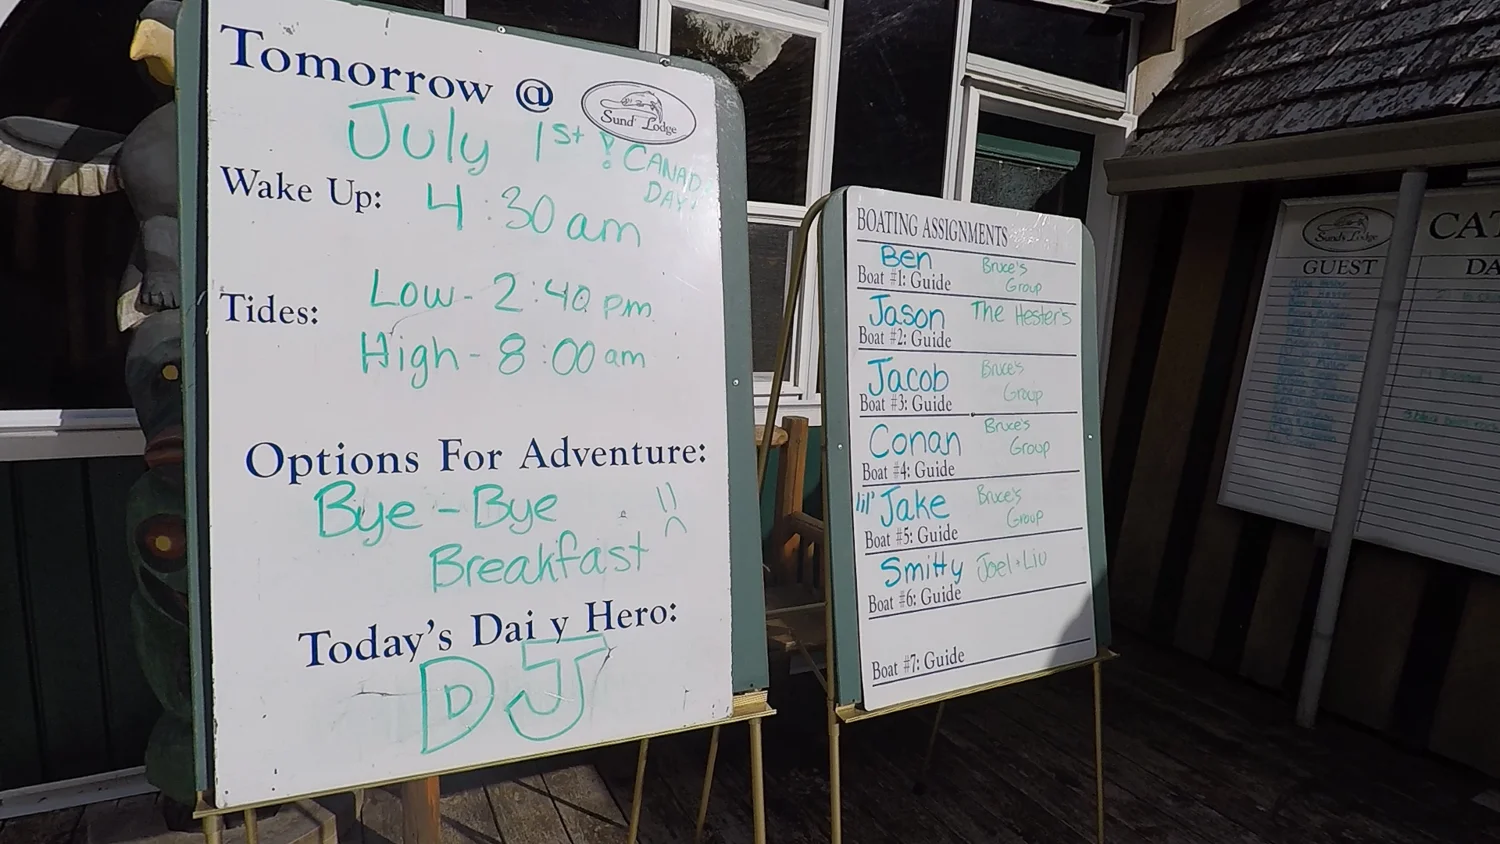 Tomorrow @
Sund's Lodge
July 1st!
CANADA
DAY!
Wake Up: 4:30am
Tides: Low - 2:40 pm
High - 8:00 am
Options For Adventure:
Bye - Bye
Breakfast
Today's Dai y Hero:
DJ
BOATING ASSIGNMENTS
Ben Bruce's
Boat #1: Guide Group
Jason The Hester's
Boat #2: Guide
Jacob Bruce's
Boat #3: Guide Group
Conan Bruce's
Boat #4: Guide Group
lil' Jake Bruce's
Boat #5: Guide Group
Smitty Joel + Liv
Boat #6: Guide
Boat #7: Guide
Sund's Lodge
CAT
GUEST
DA